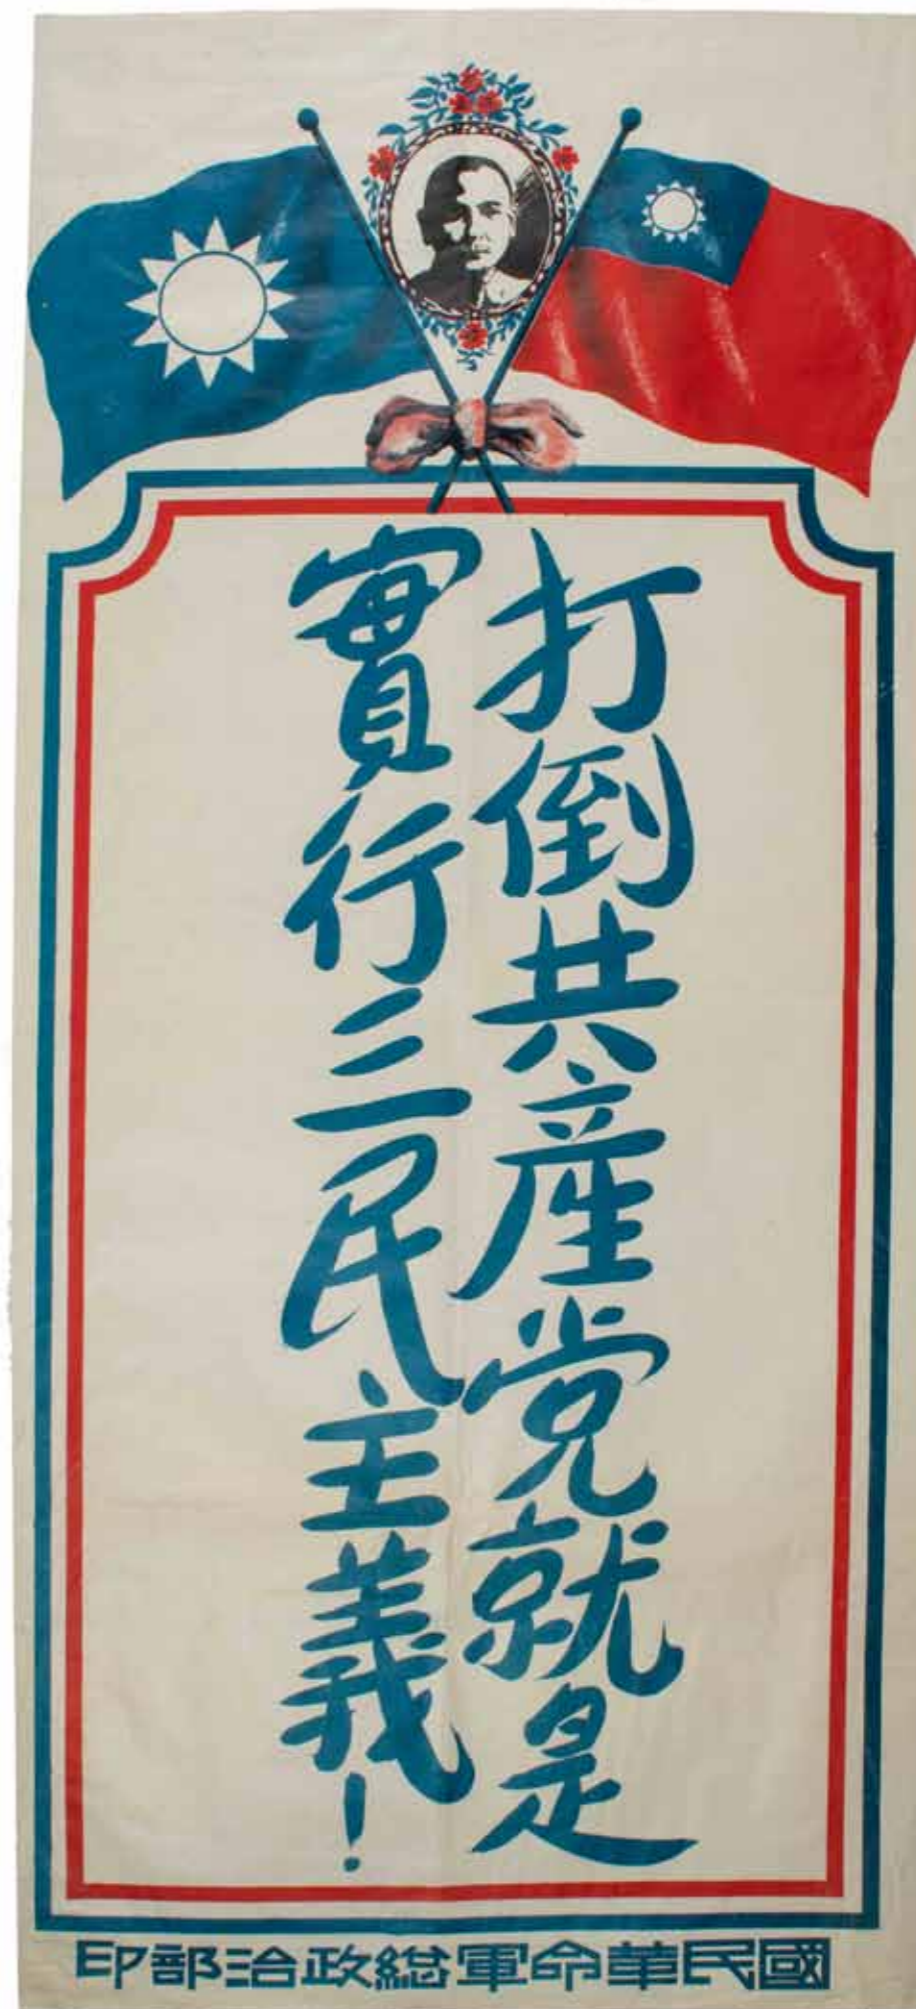 打倒共產党就是
實行三民主義!
國民革命軍總政治部印